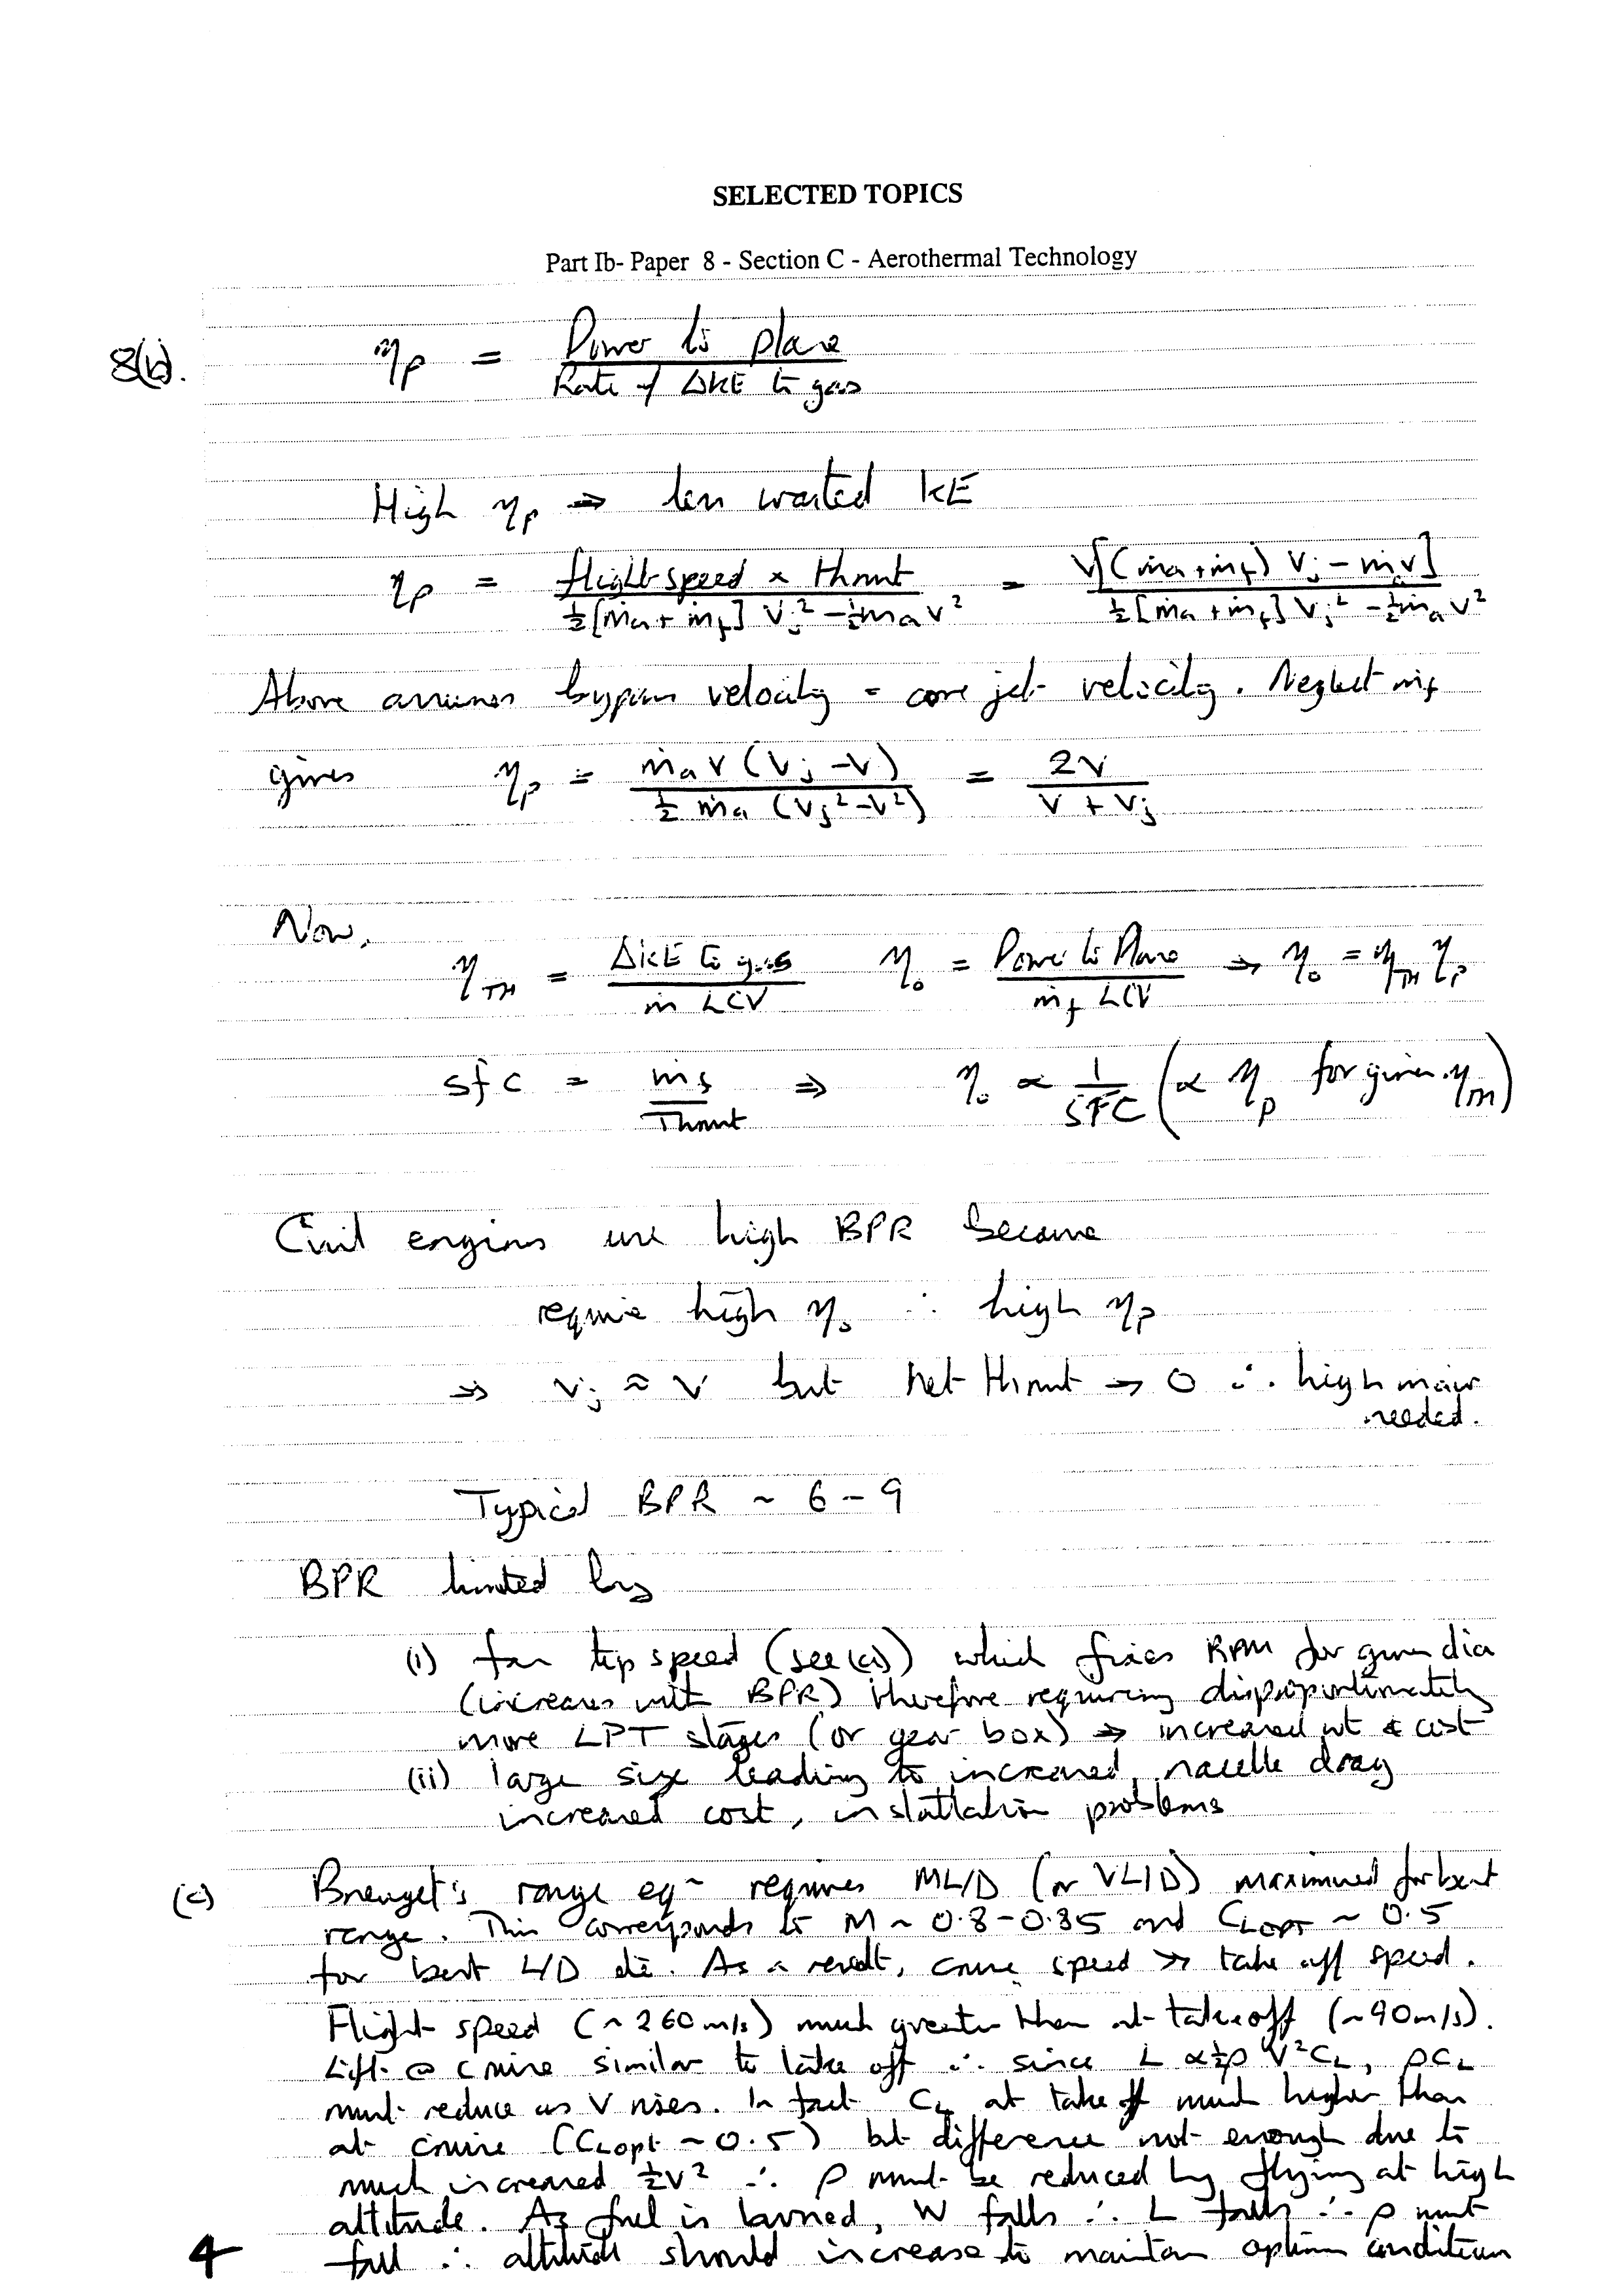 SELECTED TOPICS
Part Ib- Paper 8 - Section C - Aerothermal Technology
8(b). ηp = Power to plane / Rate of ΔKE to gas
High ηp ⇒ less wasted KE
ηp = flight speed × thrust / ½[ṁa + ṁf] Vj² - ½ṁa V² = V[(ṁa + ṁf) Vj - ṁaV] / ½[ṁa + ṁf] Vj² - ½ṁa V²
Above assumes bypass velocity = core jet velocity. Neglect ṁf
gives ηp = ṁa V (Vj - V) / ½ ṁa (Vj² - V²) = 2V / V + Vj
Now,
ηTH = ΔKE to gas / ṁ LCV ηo = Power to Plane / ṁf LCV ⇒ ηo = ηTH ηp
sfc = ṁf / Thrust ⇒ ηo ∝ 1 / SFC (∝ ηp for given ηTH)
Civil engines use high BPR because
require high ηo ∴ high ηp
⇒ Vj ≈ V but net thrust → 0 ∴ high mair
needed.
Typical BPR ~ 6 - 9
BPR limited by
(i) fan tip speed (see (a)) which fixes RPM for given dia
(increases with BPR) therefore requiring disproportionately
more LPT stages (or gear box) ⇒ increased wt & cost
(ii) large size leading to increased nacelle drag
increased cost, installation problems
(c) Breuget's range eqn requires ML/D (or VL/D) maximised for best
range. This corresponds to M ~ 0.8 - 0.85 and CLOPT ~ 0.5
for best L/D etc. As a result, cruise speed >> take off speed.
Flight speed (~ 260 m/s) much greater than at takeoff (~90m/s).
Lift @ cruise similar to take off ∴ since L ∝ ½ρ V²CL, ρCL
must reduce as V rises. In fact CL at take off much higher than
at cruise (CLopt ~ 0.5) but difference not enough due to
much increased ½V² ∴ ρ must be reduced by flying at high
altitude. As fuel is burned, W falls ∴ L falls ∴ ρ must
fall ∴ altitude should increase to maintain optimum condition
4